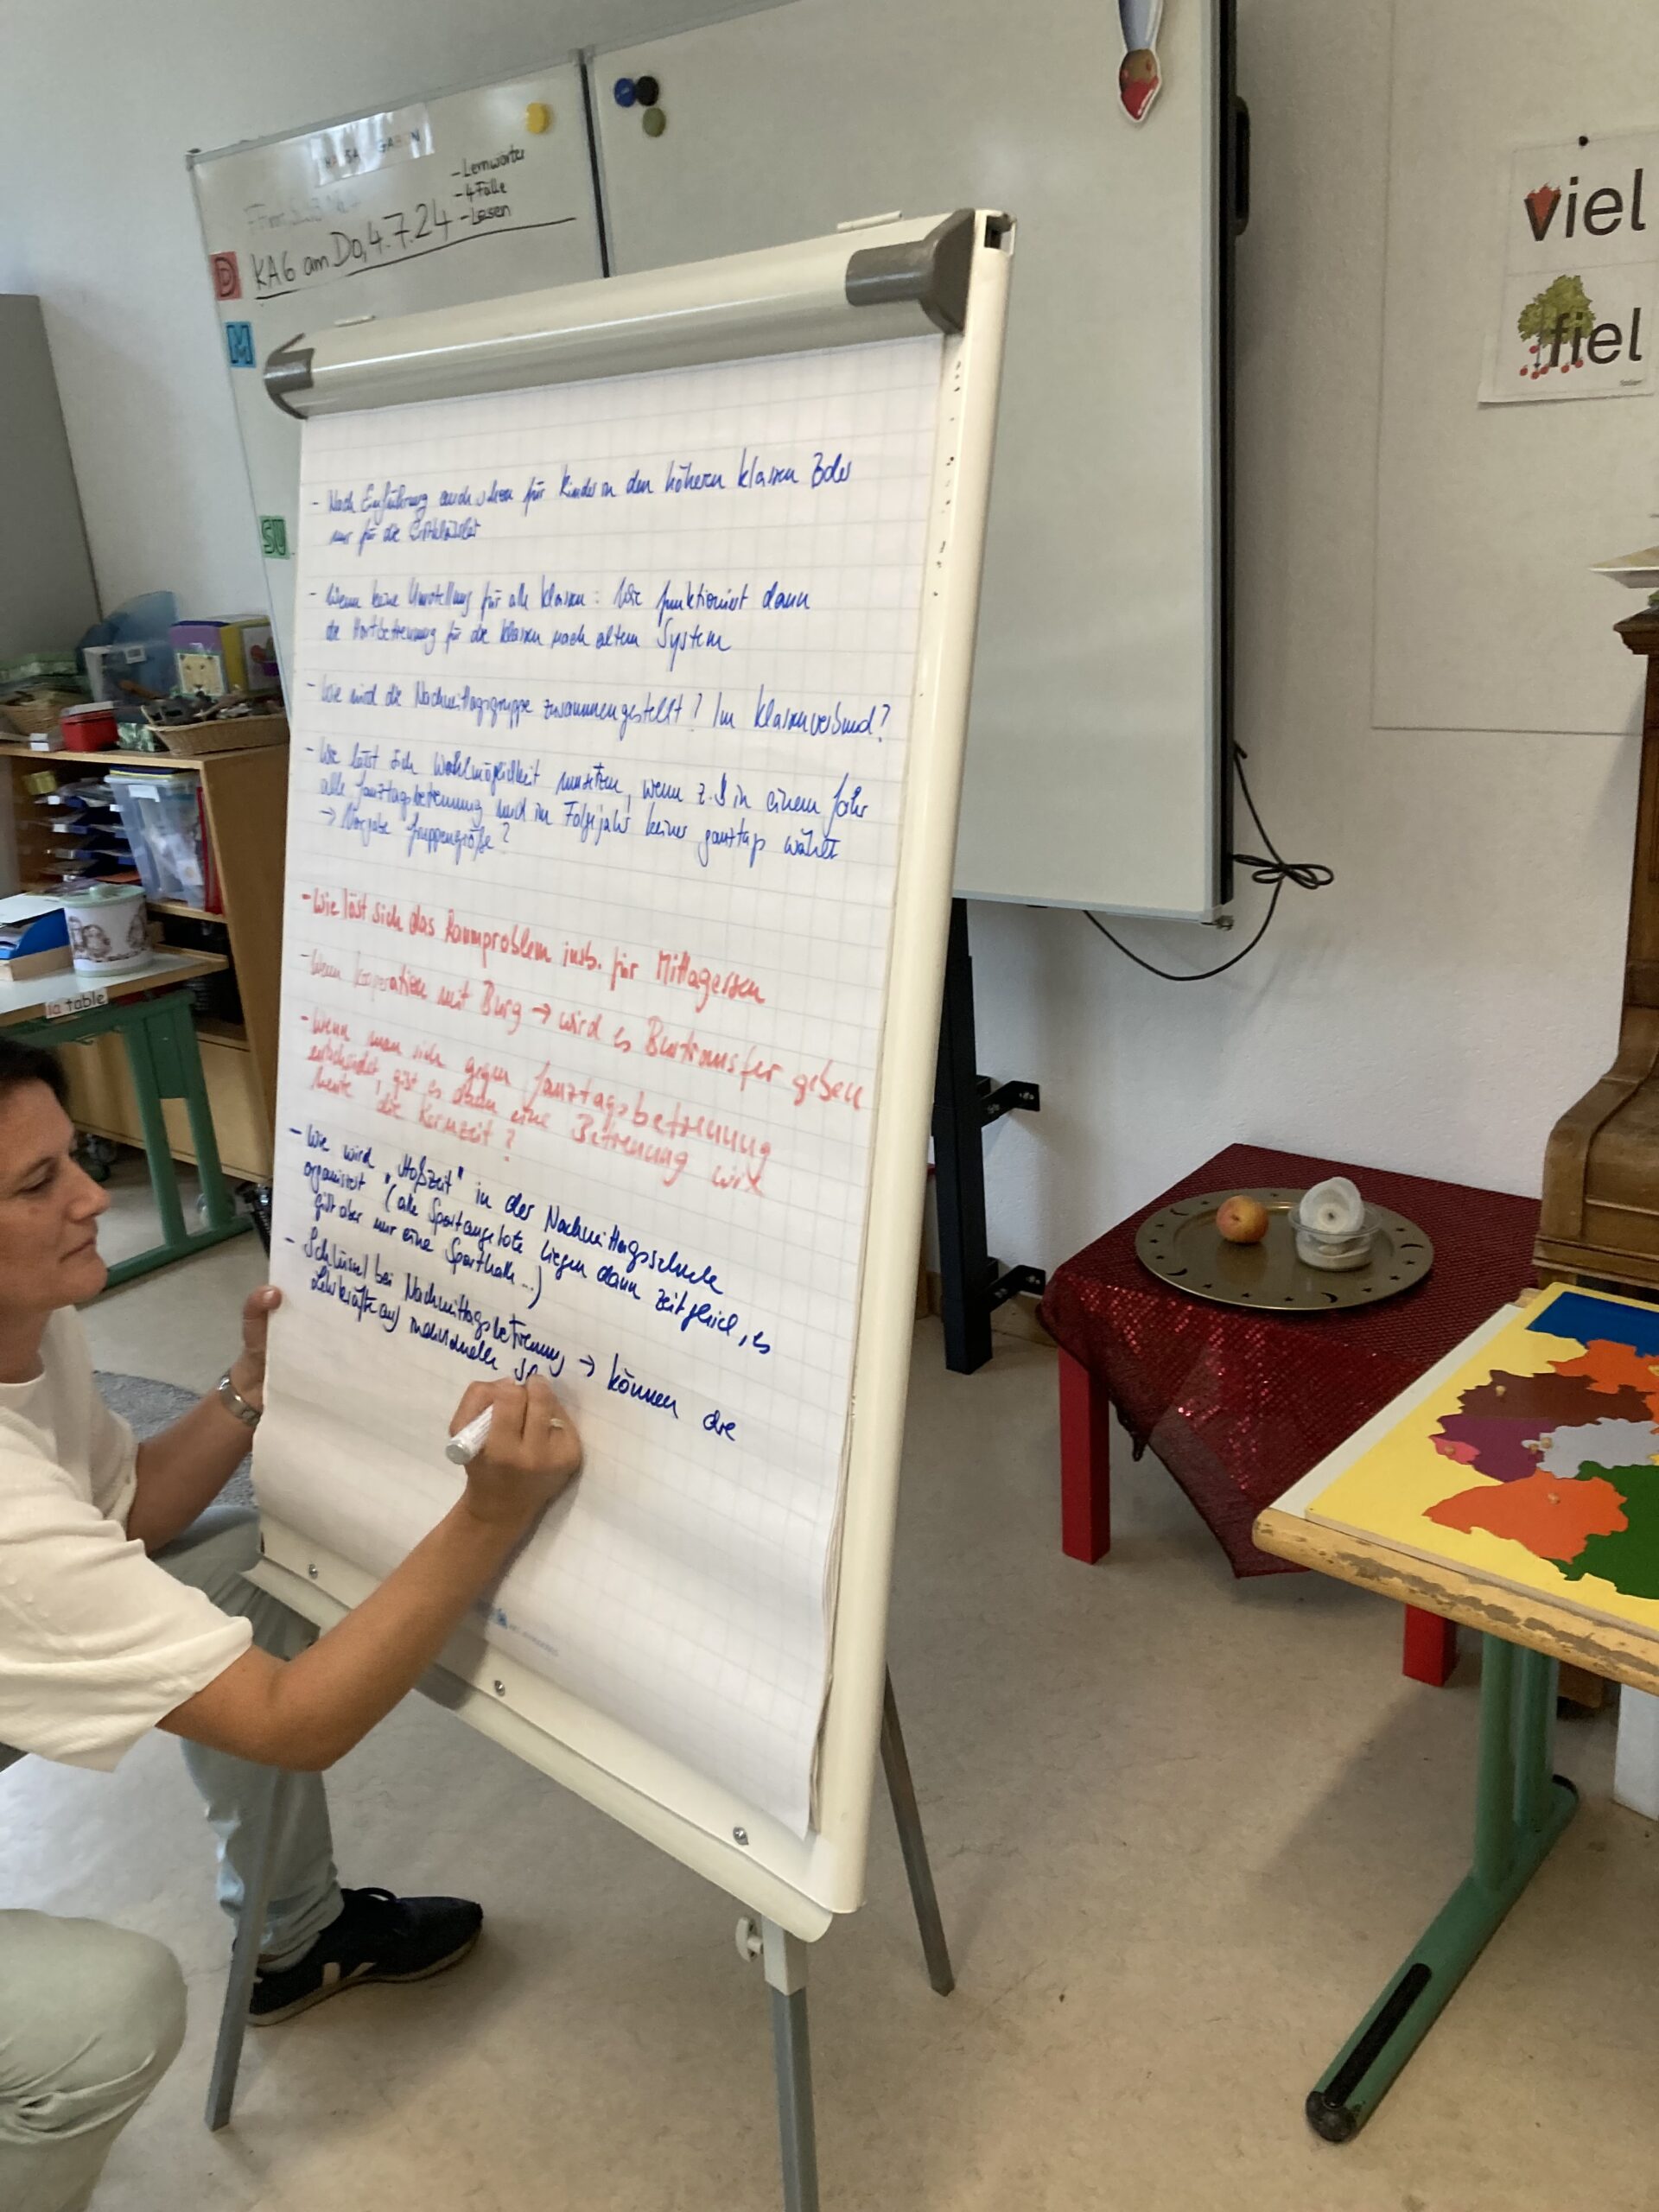 - Lernwörter
- 4 Fälle
- Lesen
KA6 am Do, 4.7.24
D
M
SU
viel
fiel
la table
- Nach Einführung auch schon für Kinder in den höhern Klassen oder
nur für die Erstklässler
- Wenn keine Umstellung für alle Klassen: Wie funktioniert dann
die Hortbetreuung für die Klassen nach altem System
- Wie wird die Nachmittagsgruppe zusammengestellt? Im Klassenverbund?
- Wie lässt sich Wahlmöglichkeit umsetzen, wenn z.B in einem Jahr
alle Ganztagsbetreuung und im Folgejahr keiner ganztags wählt
→ Vorgabe Gruppengröße?
- Wie löst sich das Raumproblem insb. für Mittagessen
- Wenn Kooperation mit Burg → wird es Bustransfer geben
- Wenn man sich gegen Ganztagsbetreuung
entscheidet, gibt es dann eine Betreuung wie
heute die Kernzeit?
- Wie wird "Hofzeit" in der Nachmittagsschule
organisiert (alle Sportangebote liegen dann zeitgleich, es
gibt aber nur eine Sporthalle...)
- Schlüssel bei Nachmittagsbetreuung → können die
Lehrkräfte auf individuelle